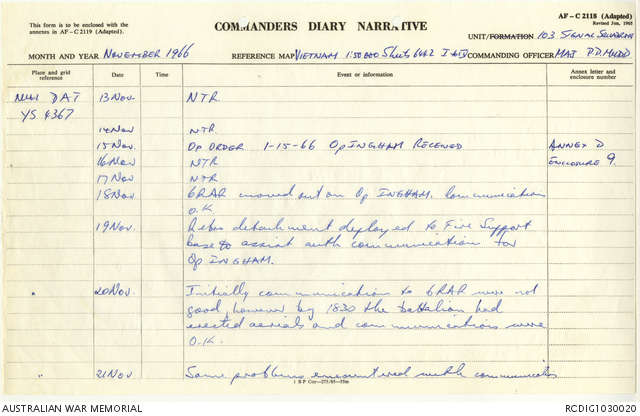 This form is to be enclosed with the
annexes in AF – C 2119 (Adapted).
COMMANDERS DIARY NARRATIVE
AF – C 2118 (Adapted)
Revised Jun, 1965
UNIT/FORMATION 103 SIGNAL SQUADRON
MONTH AND YEAR NOVEMBER 1966
REFERENCE MAP VIETNAM 1:50000 Sheets 6442 I & IV
COMMANDING OFFICER MAJ P.D. MUDD
Place and grid
reference
Date
Time
Event or information
Annex letter and
enclosure number
NUI DAT
YS 4367
13 Nov
NTR
14 Nov
NTR
15 Nov
OP ORDER 1-15-66 Op INGHAM RECEIVED
ANNEX D
ENCLOSURE 9.
16 Nov
NTR
17 Nov
NTR
18 Nov
6RAR moved out on Op INGHAM. Communication
O.K.
19 Nov
Rebro detachment deployed to Fire Support
base to assist with communication for
Op INGHAM.
"
20 Nov.
Initially communication to 6RAR were not
good, however by 1830 the battalion had
erected aerials and communications were
O.K.
"
21 Nov
Some problems encountered with communication
AUSTRALIAN WAR MEMORIAL
RCDIG1030020